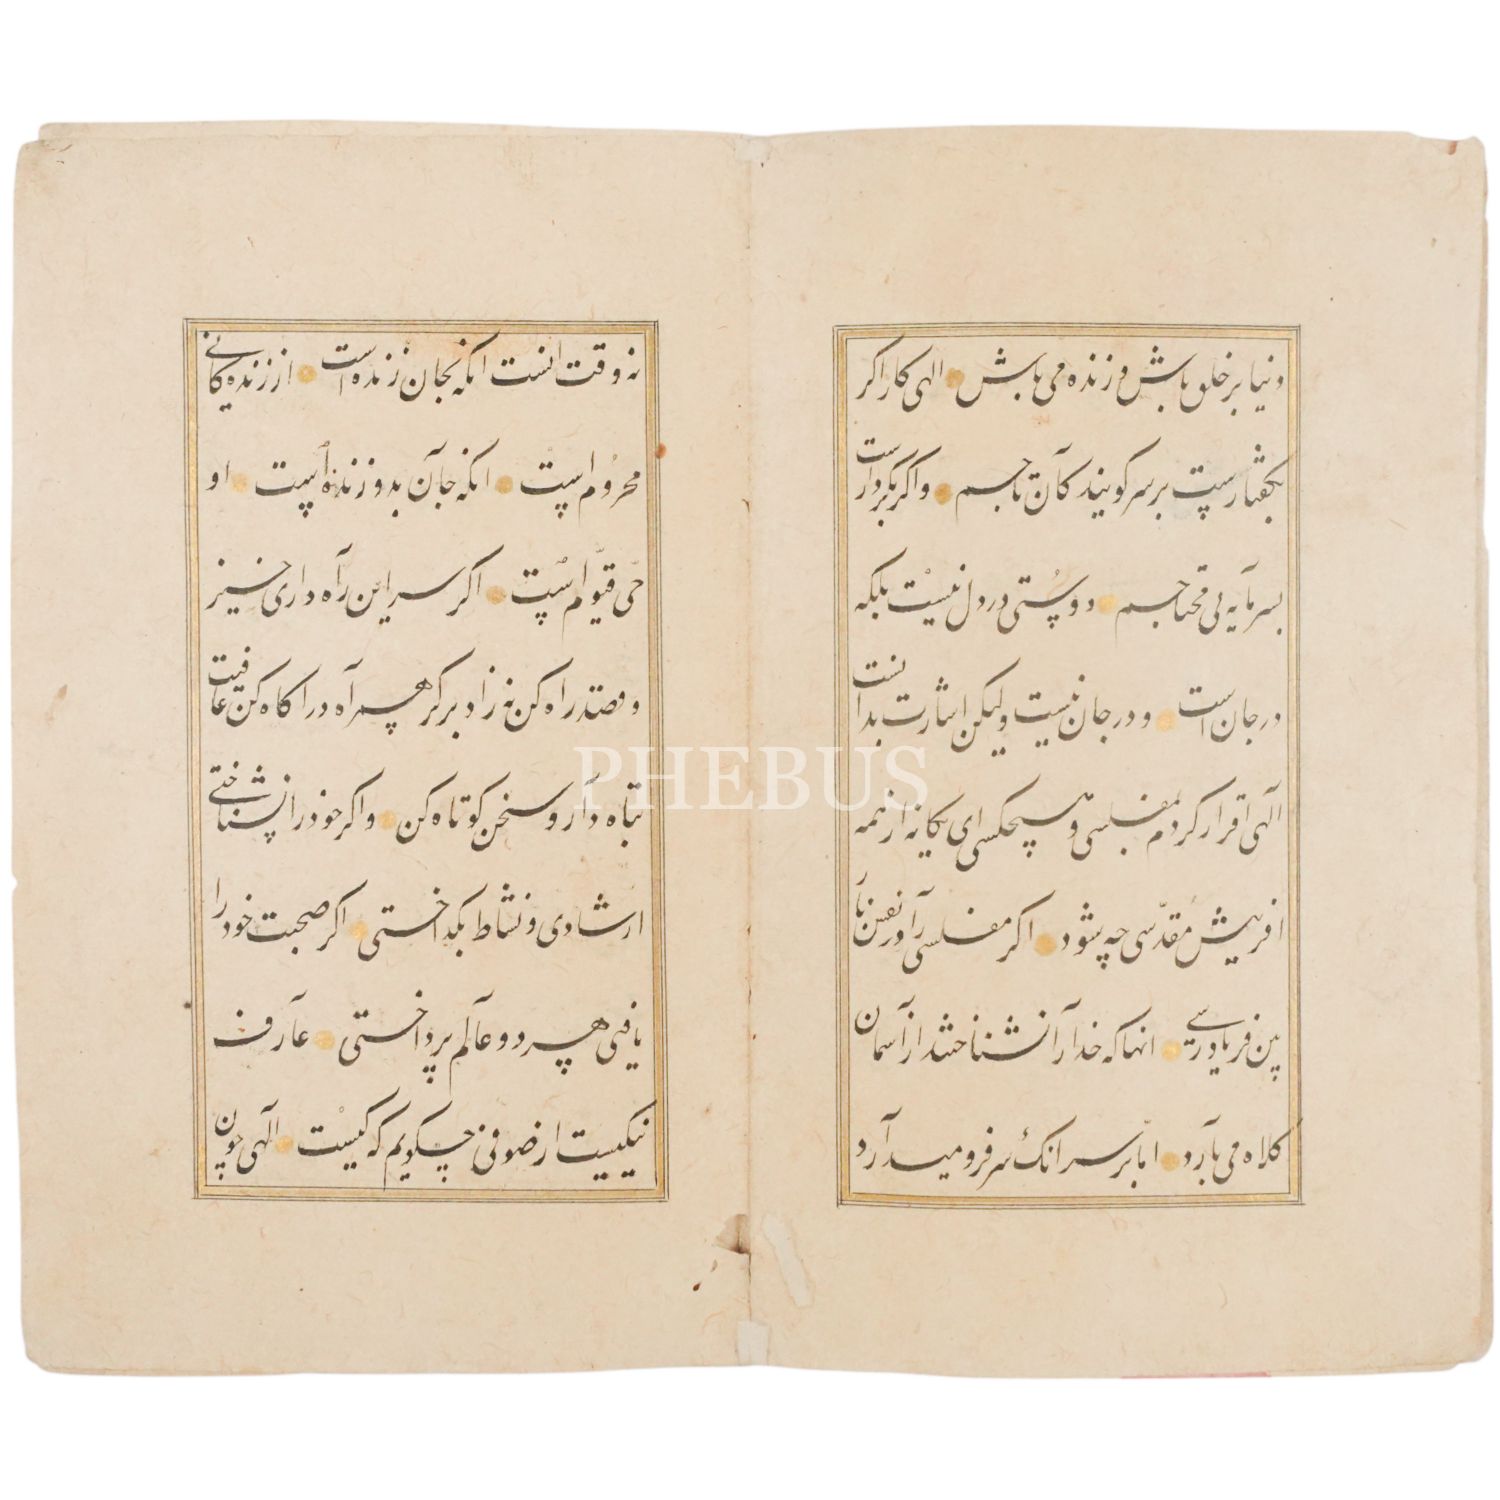 دنیا بر خلق باش و زنده می باش الهی کار اکر
بکفتارست بر سر کویند کآن تاجم واکر بکردارست
بسرمآیه بی محتاجم دوستی در دل نیست بلکه
در جان است و در جان نیست ولیکن اشارت بدانست
آلهی اقرار کردم بمفلسی و هیچکسی ای یکانه از همه
افرینش مقدسی چه شود اکر مفلسی را در نفس
پین فریادرسی انها که خدارآ نشناختند از آسمان
کلاه می بآرد امّا بر سر انک سر فرو میدآرد
نه وقت انست انکه بجان زنده است از زنده کانی
محروم است انکه جآن بدو زنده است او
حی قیّوم است اکر سر این رآه داری خیز
وقصد راه کن نه زاد بر کیر همرآه در آکاه کن عافیت
تباه دآر و سخن کوتاه کن واکر خود را بشناختی
ازشادی و نشاط بکداختی اکر صحبت خود را
یافتی هر دو عآلم پرداختی عآرف
نیکیست از صوفی چکویم که کیست آلهی چون
PHEBUS